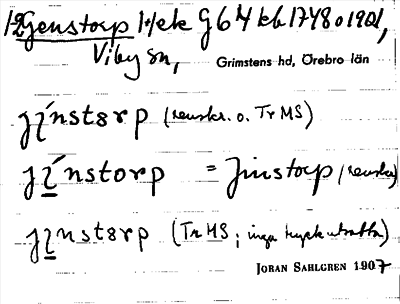 Jenstorp 1/4 ek G 64 kb 1748 o 1901,
Viby sn,
Grimstens hd, Örebro län
jı̨́nstɜrp (renskr. o. Tr MS)
jı̨́nstorp = Jinstorp (renskr.)
jı̨nstɜrp (Tr MS; inga tryck utsatta)
JÖRAN SAHLGREN 1907